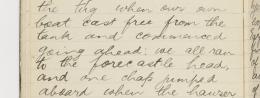 the tug when our own
boat cast free from the
tank and commenced
going ahead: we all ran
to the forecastle head,
and one chap jumped
aboard when the hawser